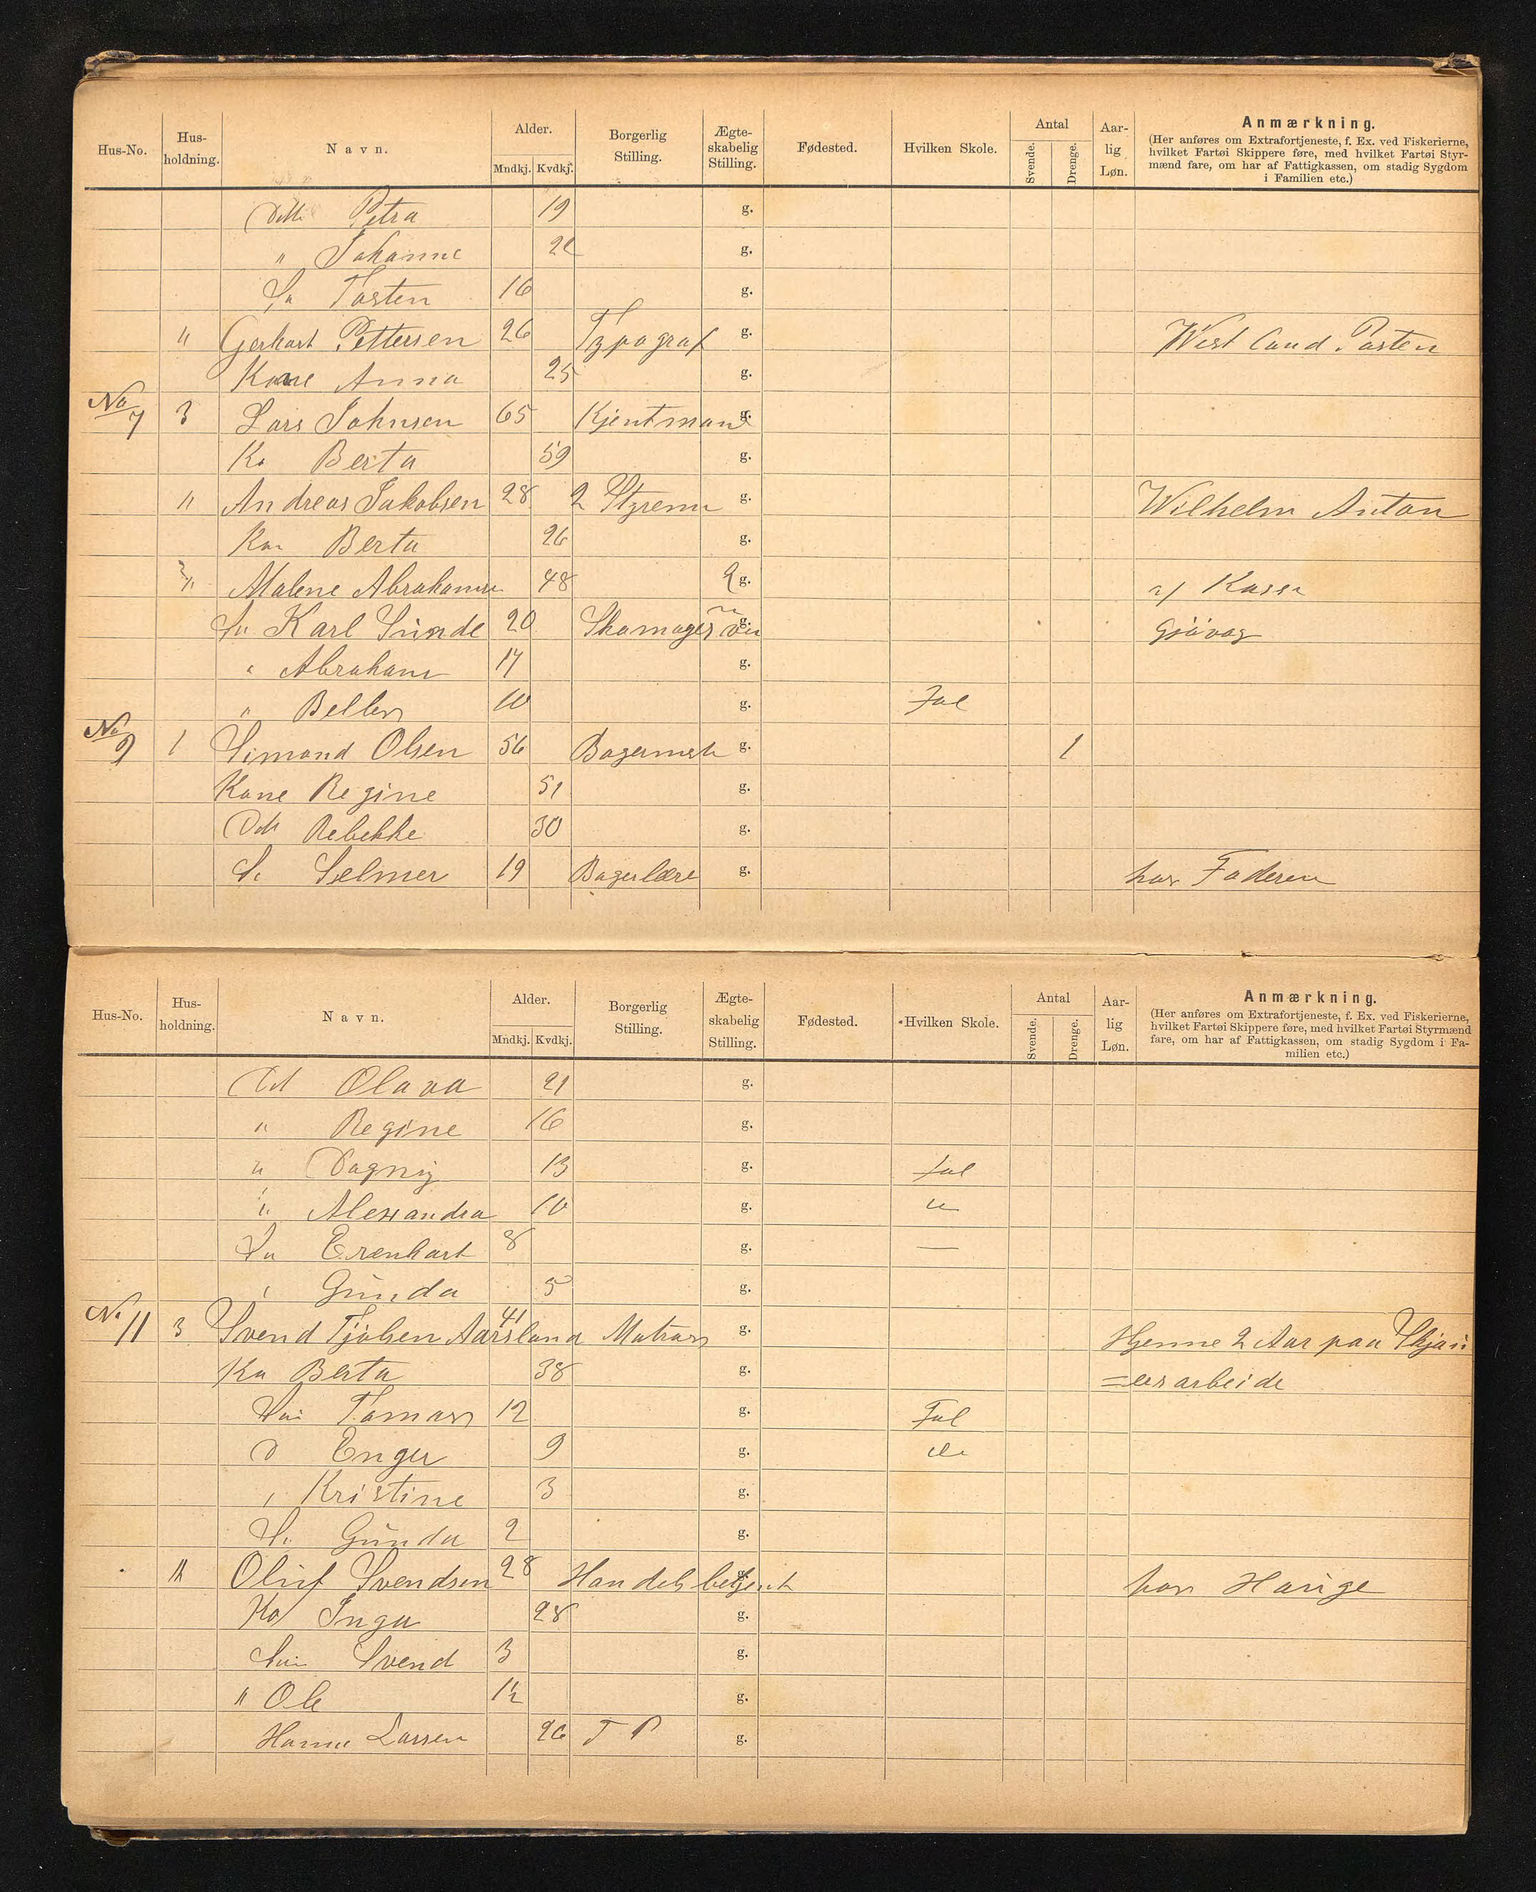 Hus-No. Hus-holdning. Navn. Alder. Mndkj. Kvdkj. Borgerlig Stilling. Ægte-skabelig Stilling. Fødested. Hvilken Skole. Antal Svende. Drenge. Aar-lig Løn. Anmærkning.
(Her anføres om Extrafortjeneste, f. Ex. ved Fiskerierne,
hvilket Fartøi Skippere føre, med hvilket Fartøi Styr-
mænd fare, om har af Fattigkassen, om stadig Sygdom
i Familien etc.)
Petra 19 g.
" Johanne g.
Torsten 16 g.
" Gerhart Pettersen 26 Typograf g. West land Posten
Kone Anna 25 g.
No 7 3 Lars Johnsen 65 Kjentmand g.
Ko Berta 59 g.
" Andreas Jakobsen 28 2 Styrem g. Wilhelm Anton
Kon Berta 26 g.
Malene Abrahamse 48 g. af Kasse
Karl Sunde 20 g.
" Abraham 17 g.
" 10 g. Fol
No 9 1 Simond Olsen 56 Bagermst g. 1
Kone Regine 51 g.
Dtt Rebekke 30 g.
S. Selmer 19 Bagerlære g. hos Faderen
Hus-No. Hus-holdning. Navn. Alder. Mndkj. Kvdkj. Borgerlig Stilling. Ægte-skabelig Stilling. Fødested. Hvilken Skole. Antal Svende. Drenge. Aar-lig Løn. Anmærkning.
(Her anføres om Extrafortjeneste, f. Ex. ved Fiskerierne,
hvilket Fartøi Skippere føre, med hvilket Fartøi Styrmænd
fare, om har af Fattigkassen, om stadig Sygdom i Fa-
milien etc.)
Dtt Olava 21 g.
" Regine 16 g.
" Dagny 13 g. Fol
" Alexandra 10 g. "
Su Erenhart 8 g. —
Gunda 5 g.
No. 11 3 Svend Tjølsen Aarsland 41 Matros g. Hjemme 2 Aar paa Skjau
Ko Berta 38 g. =erarbeide
Søn Tomas 12 g. Fol
D Enger 9 g.
" Kristine 3 g.
S. Gunda 2 g.
Oluf Svendsen 28 Handelsbetjent g. hos Hauge
Ko Inga 28 g.
Søn Svend 3 g.
" Ole 1½ g.
Hanne Larsen 26 T P g.